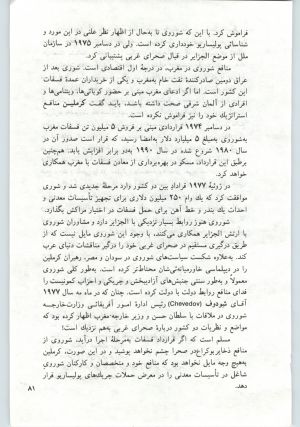 فراموش کرد. با این که شوروی تا به‌حال از اظهار نظر علنی در این مورد و
شناسائی پولیساریو خودداری کرده است. ولی در دسامبر ۱۹۷۵ در سازمان
ملل از موضع الجزایر در قبال صحرای غربی پشتیبانی کرد.
منافع شوروی در مغرب، در درجهٔ اول اقتصادی است. شوری بعد از
عراق دومین صادرکنندهٔ نفت خام به‌مغرب و یکی از خریداران عمدهٔ فسفات
این کشور است. اما اگر ادعای مغرب مبنی بر حضور کوبائی‌ها، ویتنامی‌ها و
افرادی از آلمان شرقی صحت داشته باشد، بایند گفت کرملین منافع
استراتژیک خود را نیز فراموش نکرده است.
در دسامبر ۱۹۷۴ قراردادی مبنی بر فروش ۵ میلیون تن فسفات مغرب
به‌شوروی به‌مبلغ ۵ میلیارد دلار به‌امضا رسید، که قرار است صدور آن در
سال ۱۹۸۰ شروع شده در سال ۱۹۹۰ به‌دو برابر افزایش یابد. هم‌چنین
برطبق این قرارداد، مسکو در بهره‌برداری از معادن فسفات با مغرب همکاری
خواهد کرد.
در ژوئیهٔ ۱۹۷۷ قرارداد بین دو کشور وارد مرحلهٔ جدیدی شد و شوری
موافقت کرد که یک وام ۲۵۰ میلیون دلاری برای تجهیز تأسیسات معدنی و
احداث یک بندر و خط آهن برای حمل فسفات در اختیار مراکش بگذارد.
شوروی هنوز روابط بسیار نزدیکی با الجزایر دارد و مشاوران شوروی
با ارتش الجزایر همکاری می‌کنند. با وجود این شوروی مایل نیست که از
طریق درگیری مستقیم در صحرای غربی خود را درگیر مناقشات دنیای عرب
کند. به‌علاوه شکست سیاست‌های شوروی در سودان و مصر، رهبران کرملین
را در دیپلماسی خاورمیانه‌ئی‌شان محتاط‌تر کرده است. به‌طور کلی شوروی
معمولا و به‌طور سنتی جنبش‌های آزادیبخش و چریکی و احزاب کمونیست را
فدای منافع روابط دولت با دولت کرده است. چنان که در ماه مه سال ۱۹۷۷
آقای شیدوف (Chevedov) رئیس ادارهٔ امور آفریقائی وزارت‌خارجه
شوروی در ملاقات با سلطان حسن و وزیر خارجه مغرب اظهار کرده بود که
مواضع و نظریات دو کشور دربارهٔ صحرای غربی به‌هم نزدیک است!
مسلم است که اگر قرارداد فسفات به‌مرحلهٔ اجرا درآید، شوروی از
منافع ذخایر بوکراع در صحرا چشم نخواهد پوشید و در این صورت، کرملین
به‌هیچ وجه مایل نخواهد بود که منافع خود و متخصصان و کارکنان شوروی
شاغل در تأسیسات معدنی را در معرض حملات چریک‌های پولیساریو قرار
دهد.
۸۱